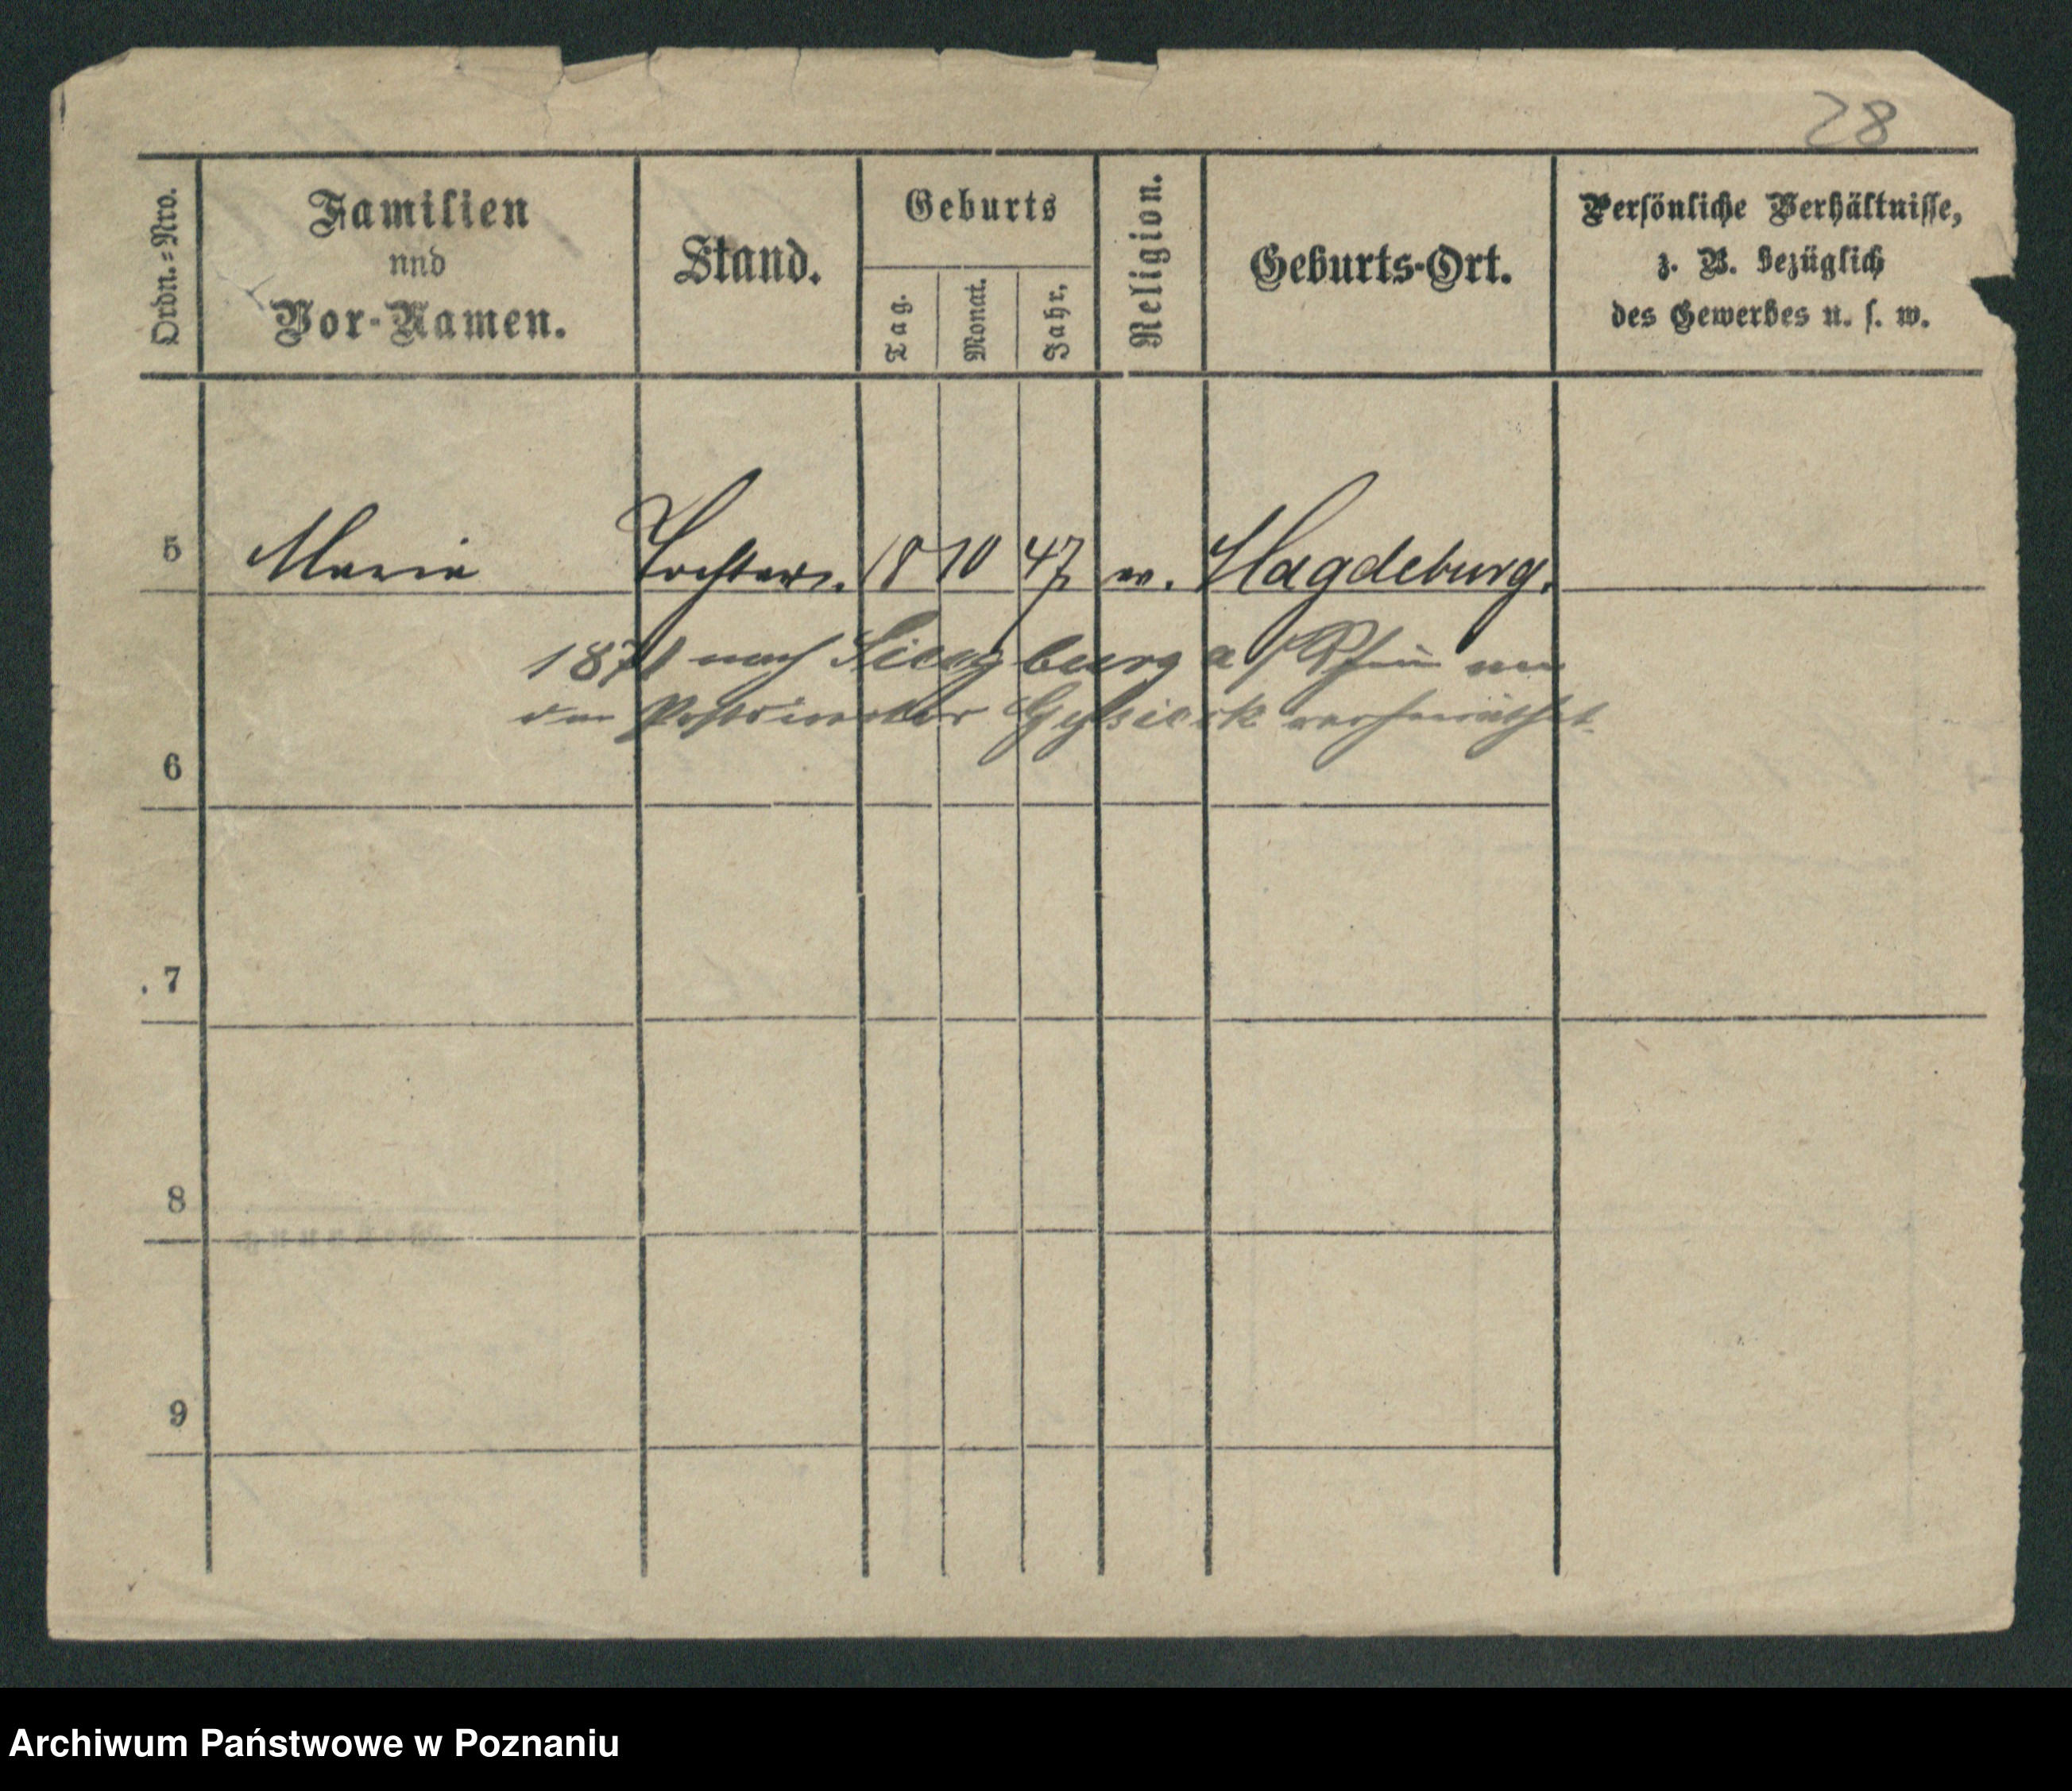 28
Ordn.=Nro.
Familien
und
Vor-Namen.
Stand.
Geburts
Tag.
Monat.
Jahr.
Religion.
Geburts-Ort.
Persönliche Verhältnisse,
z. B. bezüglich
des Gewerbes u. s. w.
5 Maria Tochter. 18 10 47 ev. Magdeburg.
1871 nach Siegburg a/Rhein an
den Postdirektor Gysicek verheirathet.
6
7
8
9
Archiwum Państwowe w Poznaniu